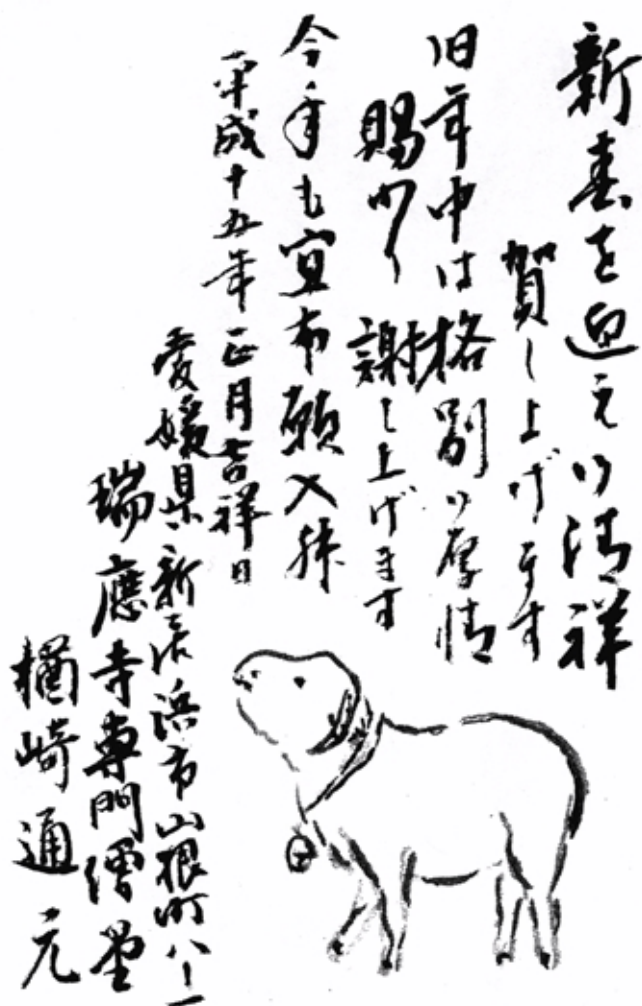 新春を迎え御清祥
賀し上げます
旧年中は格別の厚情
賜わり謝し上げます
今年も宜布願入拝
平成十五年正月吉祥日
愛媛県新居浜市山根町八ー一
瑞應寺専門僧堂
楢崎通元